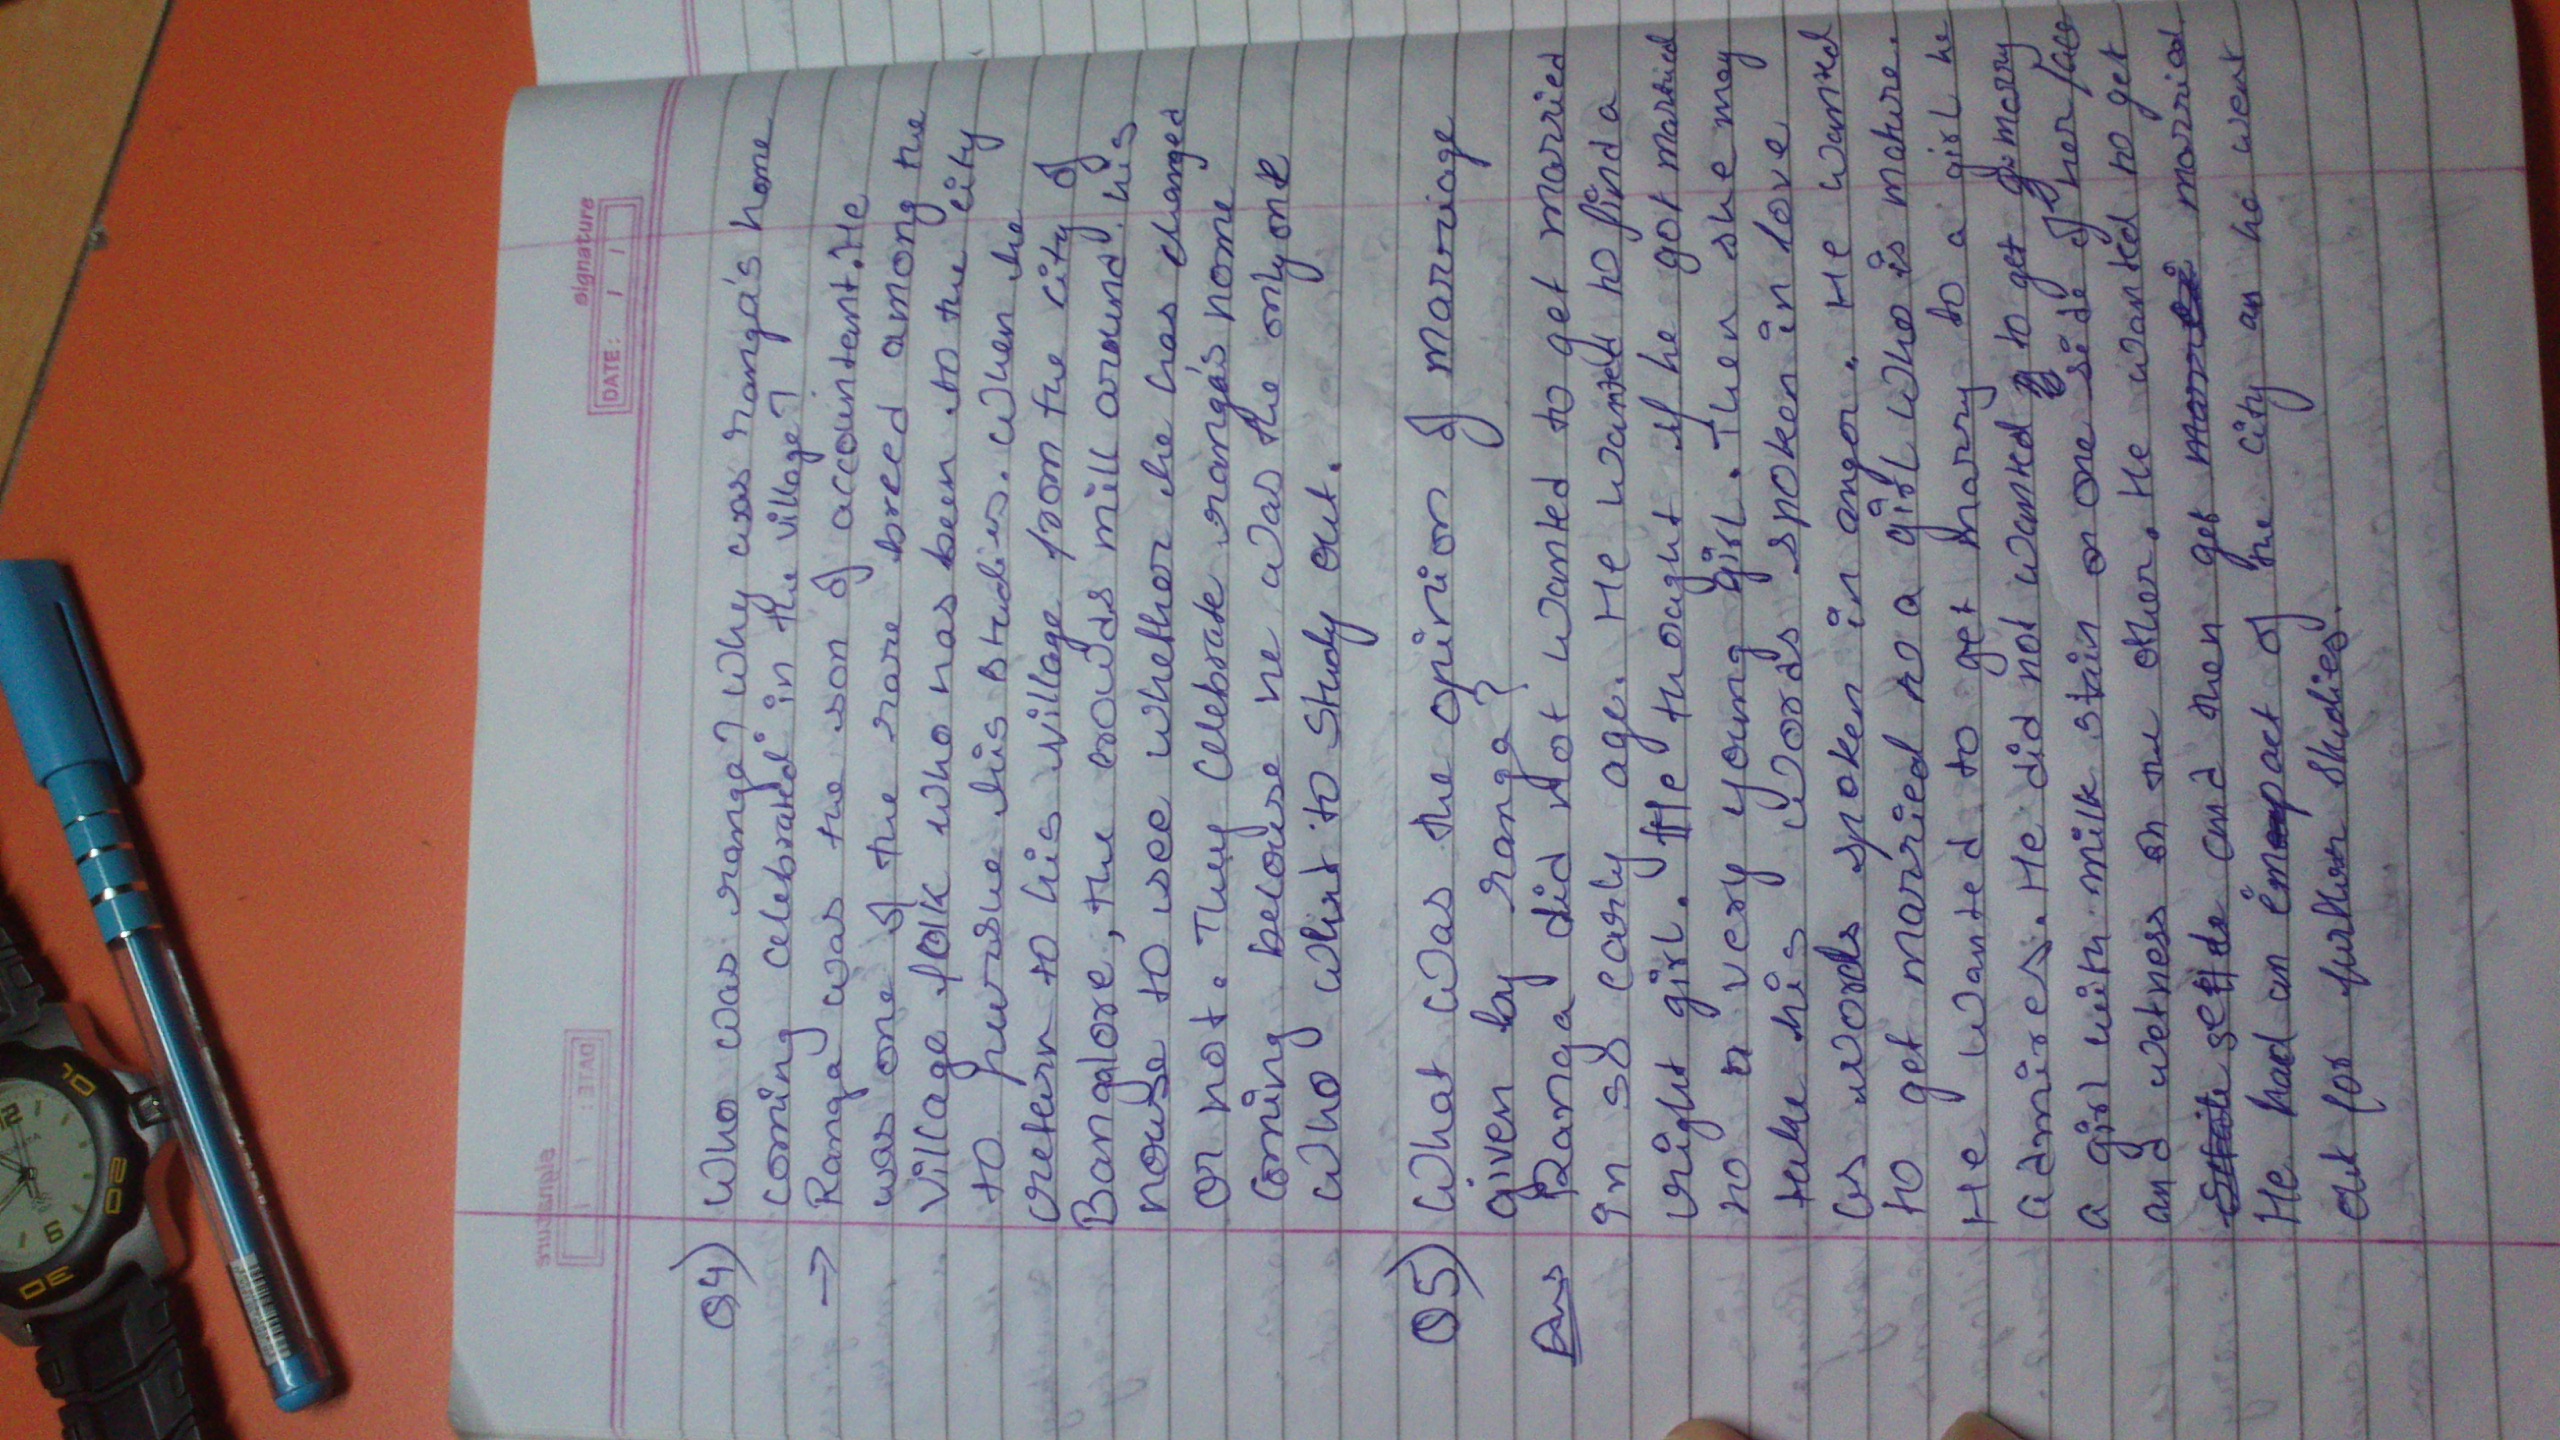 signature
DATE: / /
Q4) Who was ranga? Why was ranga's home
coming celebrated in the village?
→ Ranga was the son of accountant. He
was one of the rare breed among the
village folk who has been to the city
to purshue his studies. When he
return to his village from the city of
Bangalore, the crowds mill around his
house to see whether he has changed
or not. They celebrate ranga's home
coming because he was the only one
who to study out.
Q5) What was the opinion of marriage
given by ranga?
Ans Ranga did not wanted to get married
in so early age. He wanted to find a
right girl. He thought if he got married
to a very young girl. Then she may
take his words spoken in love
as words spoken in anger. He wanted
to get married to a girl who is mature.
He wanted to get marry to a girl he
admires. He did not wanted to get marry
a girl with milk stain on one side of her face
and wetness on the other. He wanted to get
settle and then get married
He had an impact of the city as he went
out for further studies.